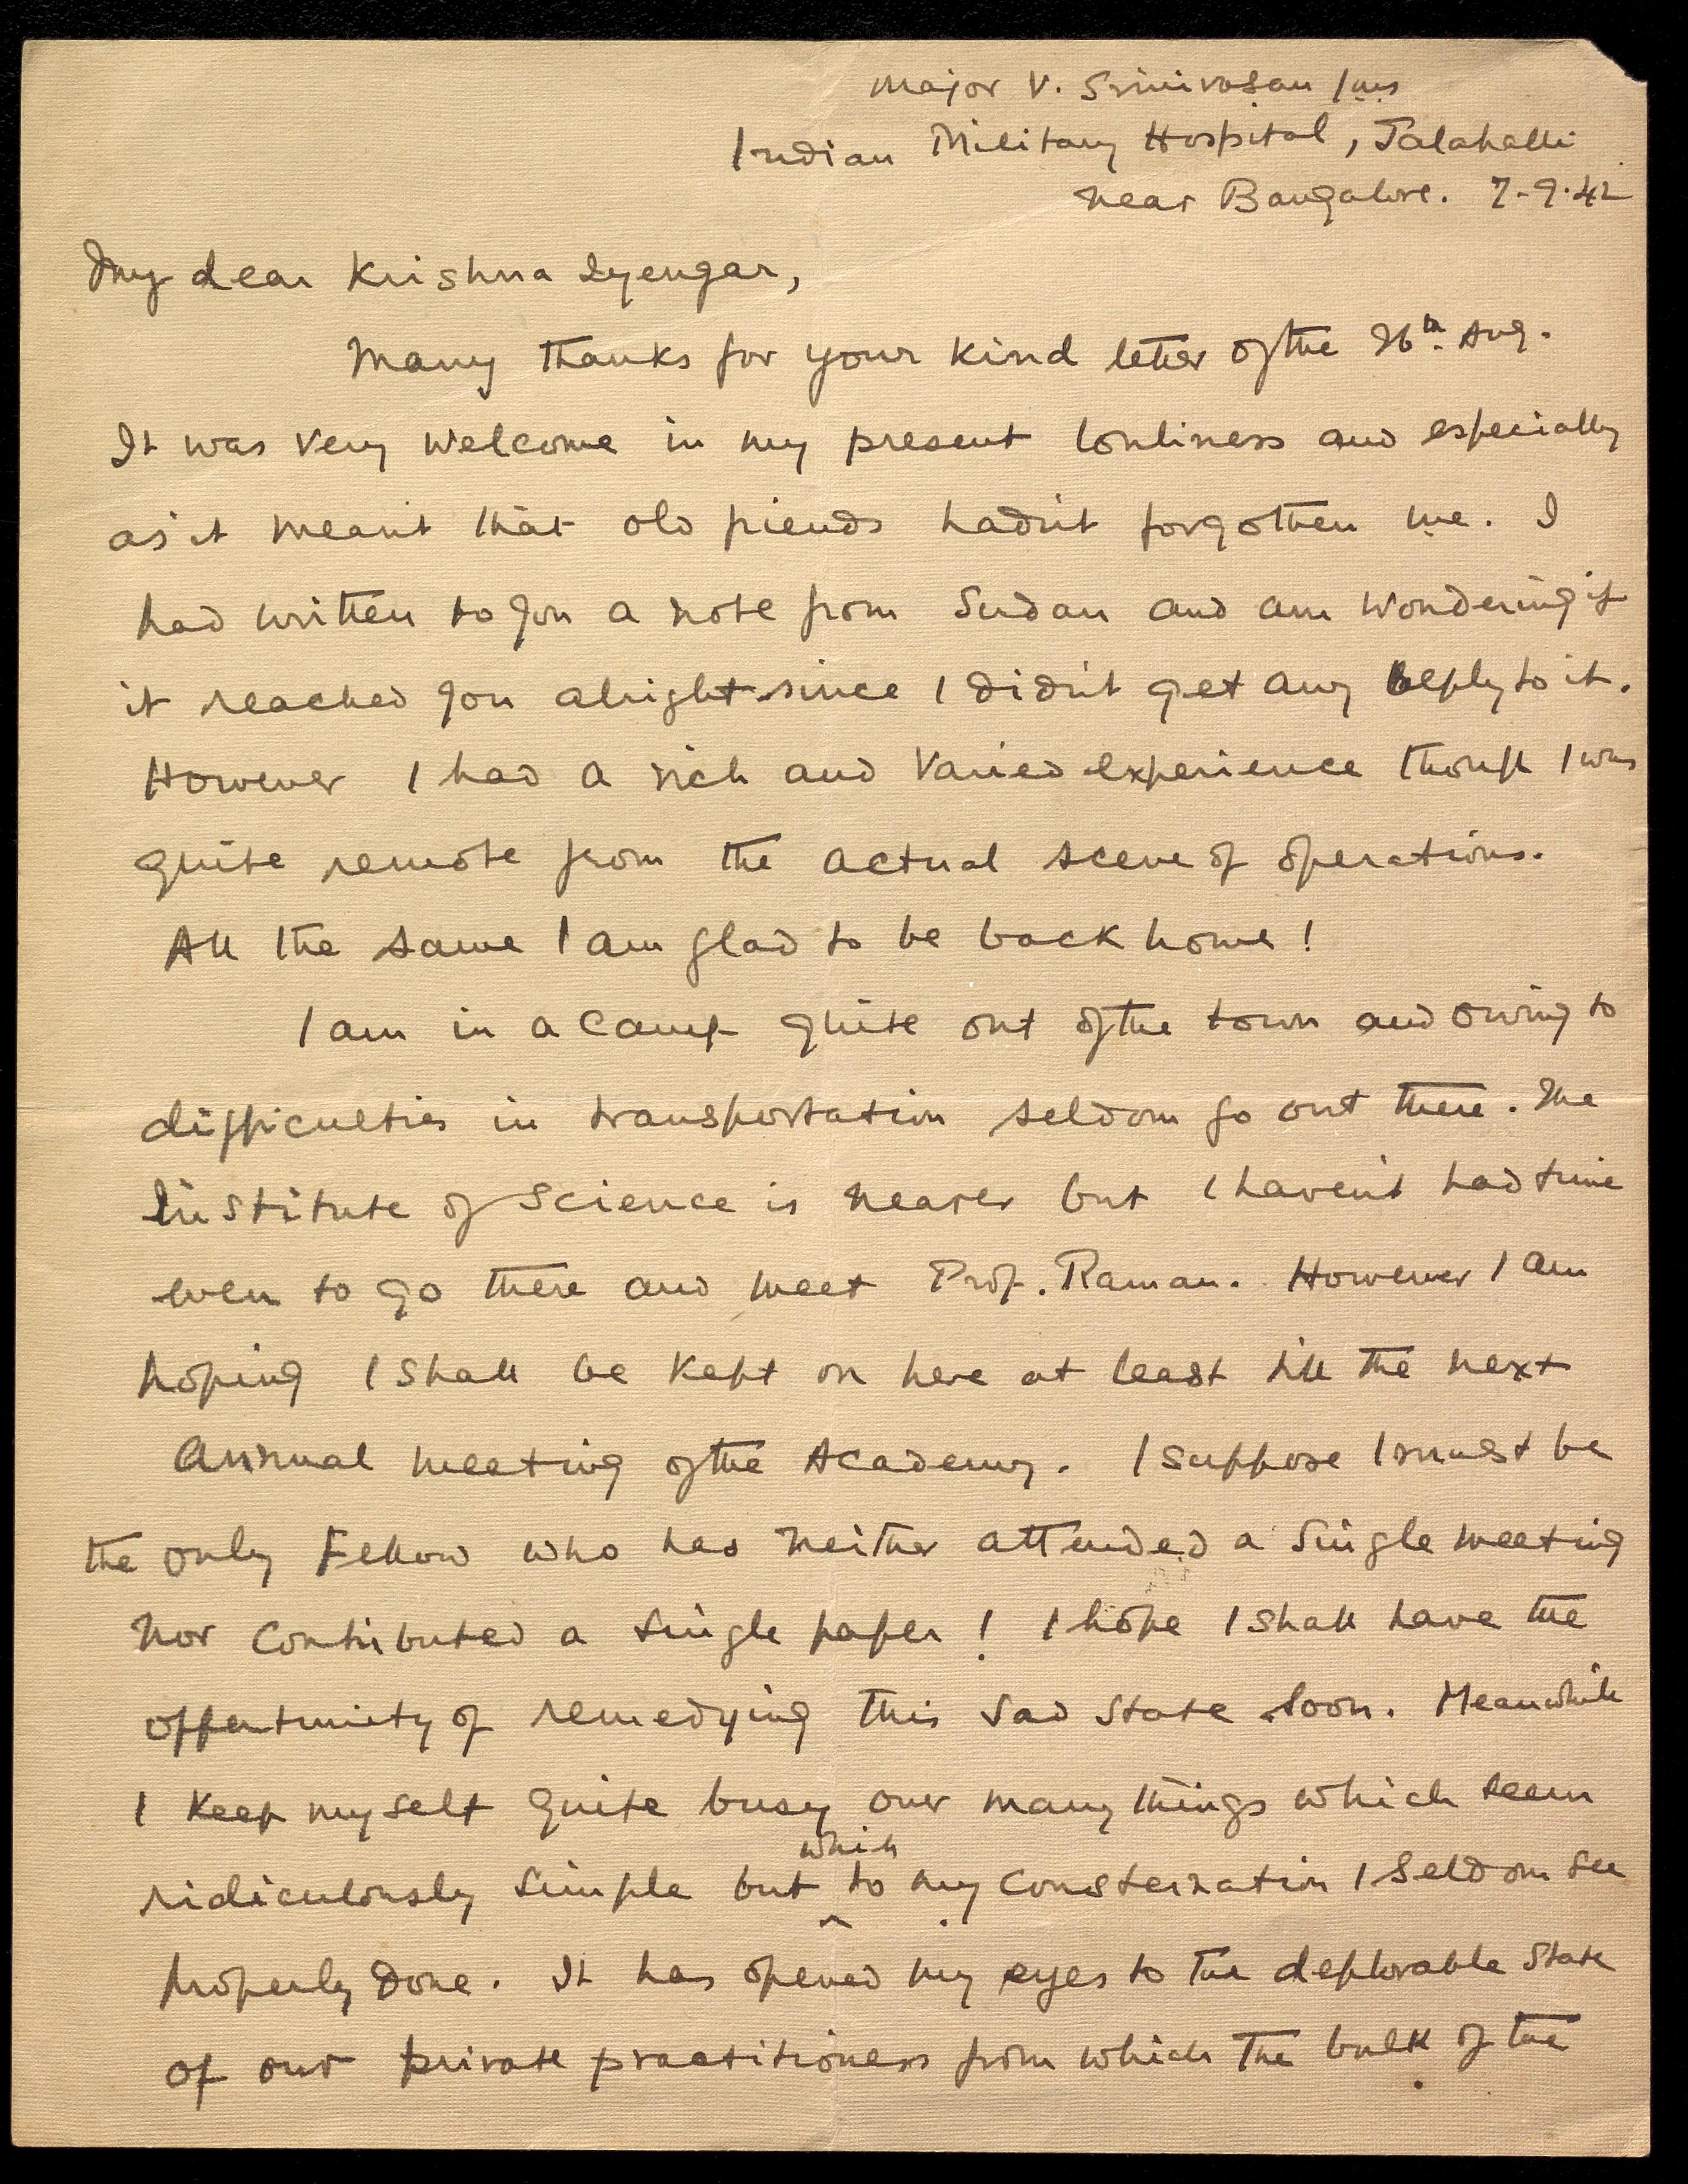 Major V. Srinivasan IMS
Indian Military Hospital, Jalahalli
Near Bangalore. 7-9-42
My dear Krishna Iyengar,
Many thanks for your kind letter of the 26th. Aug.
It was very welcome in my present lonliness and especially
as it meant that old friends hadn't forgotten me. I
had written to you a note from Sudan and am wondering if
it reached you alright since I didn't get any reply to it.
However I had a rich and varied experience though I was
quite remote from the actual scene of operations.
All the same I am glad to be back home!
I am in a camp quite out of the town and owing to
difficulties in transportation seldom go out there. The
Institute of Science is nearer but I haven't had time
even to go there and meet Prof. Raman. However I am
hoping I shall be kept on here at least till the next
Annual meeting of the Academy. I suppose I must be
the only Fellow who has neither attended a single meeting
nor contributed a single paper! I hope I shall have the
oppertunity of remedying this sad state soon. Meanwhile
I keep myself quite busy over many things which seem
ridiculously simple but which to my consternation I seldom see
properly done. It has opened my eyes to the deplorable state
of our private practitioners from which the bulk of the